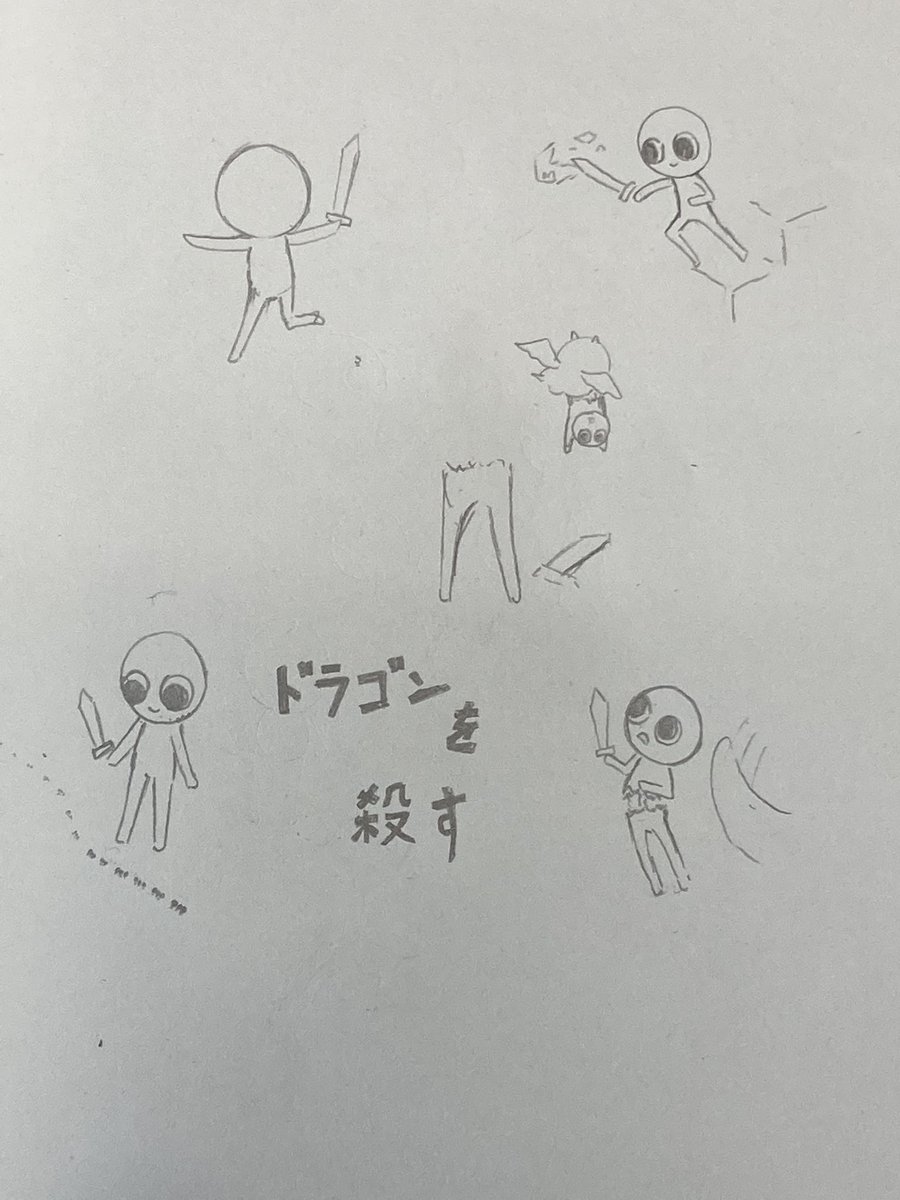 ドラゴン
を
殺す